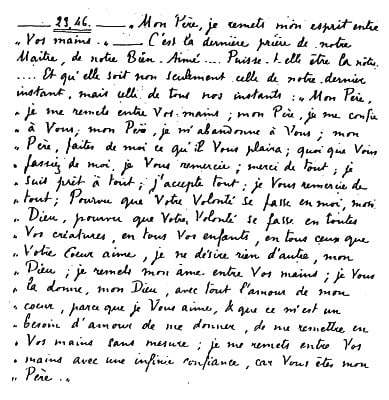 — 23,46. — „ Mon Père, je remets mon esprit entre
„ Vos mains „ — C'est la dernière prière de notre
Maître, de notre Bien-Aimé .... Puisse-t-elle être la nôtre
.... Et qu'elle soit non seulement celle de notre dernier
instant, mais celle de tous nos instants : „ Mon Père,
„ je me remets entre Vos mains ; mon Père, je me confie
„ à Vous ; mon Père, je m'abandonne à Vous ; mon
„ Père, faites de moi ce qu'il Vous plaira ; quoi que Vous
„ fassiez de moi, je Vous remercie ; merci de tout ; je
„ suis prêt à tout ; j'accepte tout ; je Vous remercie de
„ tout ; Pourvu que Votre Volonté se fasse en moi, mon
„ Dieu, pourvu que Votre Volonté se fasse en toutes
„ Vos créatures, en tous Vos enfants, en tous ceux que
„ Votre Cœur aime, je ne désire rien d'autre, mon
„ Dieu ; je remets mon âme entre Vos mains ; je Vous
„ la donne, mon Dieu, avec tout l'amour de mon
„ cœur, parce que je Vous aime, & que ce m'est un
„ besoin d'amour de me donner, de me remettre en
„ Vos mains sans mesure ; je me remets entre Vos
„ mains avec une infinie confiance, car Vous êtes mon
„ Père .. „